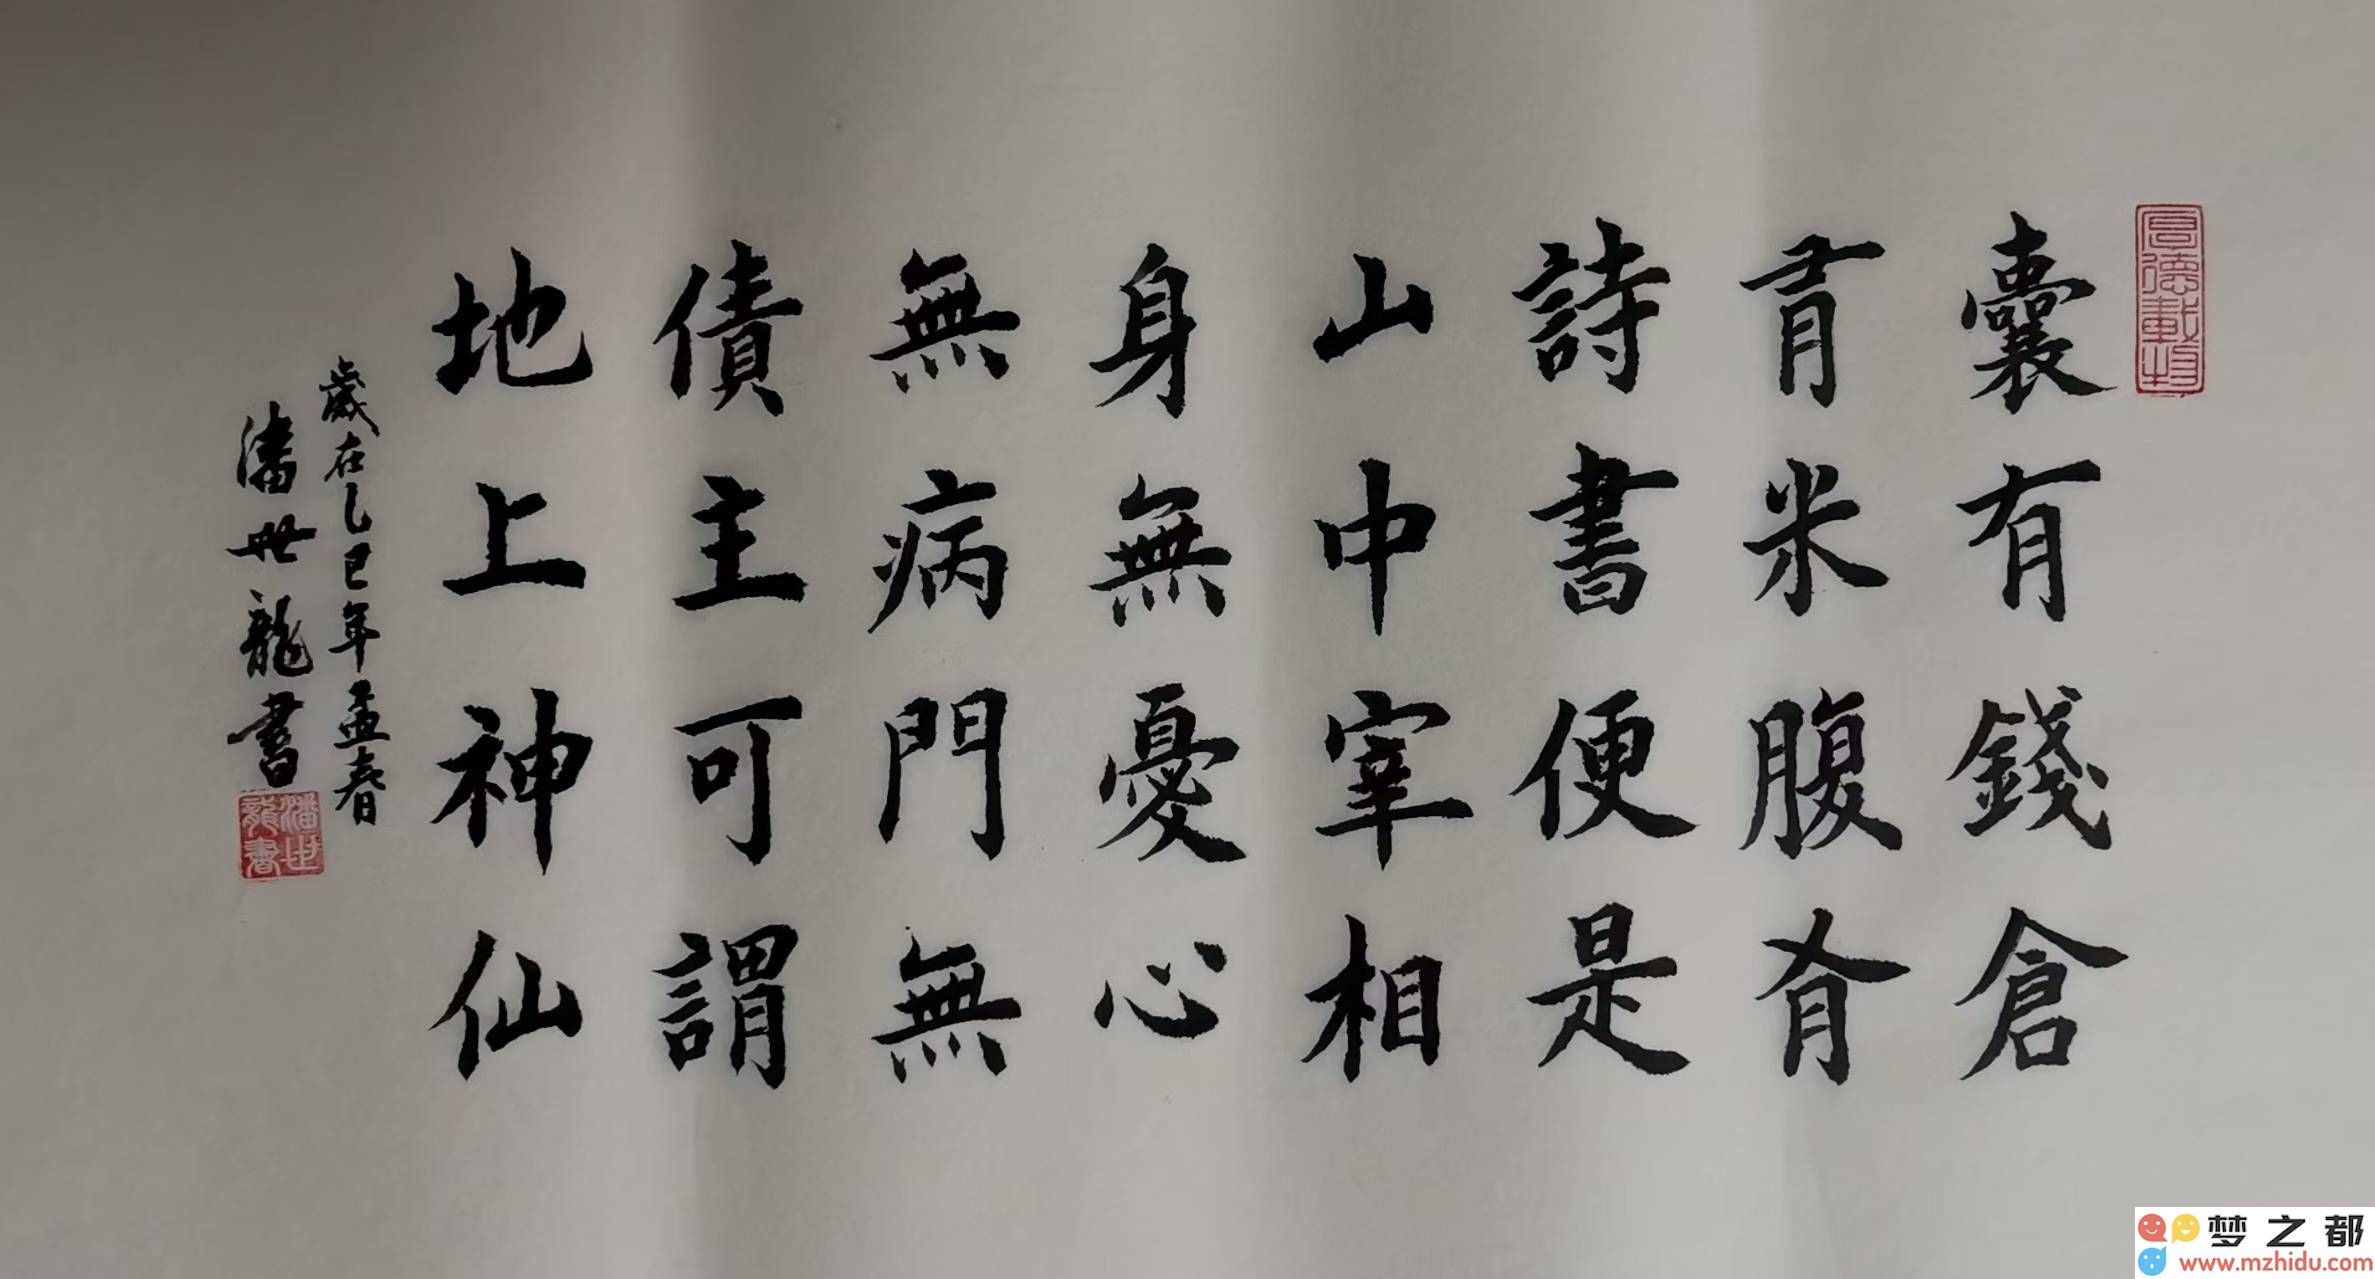 厚德載物
囊有錢倉
有米腹有
詩書便是
山中宰相
身無憂心
無病門無
債主可謂
地上神仙
歲在乙巳年孟春
潘世龍書
潘世龍書
梦之都
www.mzhidu.com